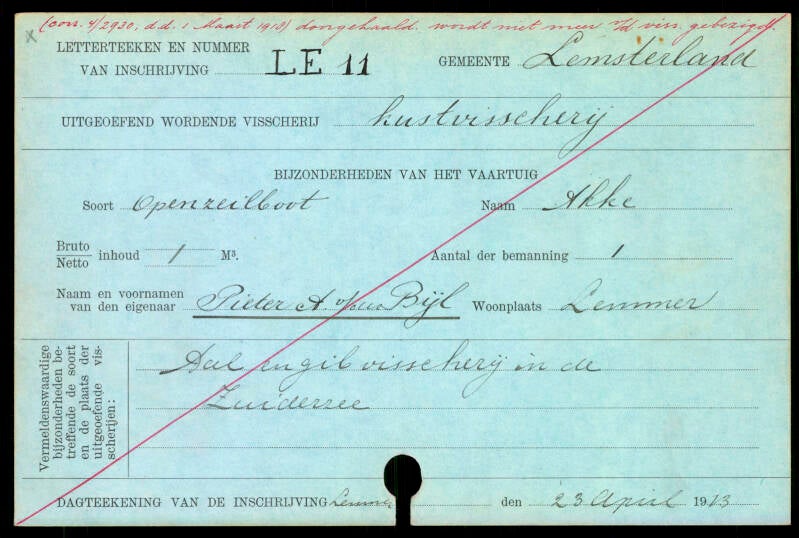 (corr. 4/2930, d.d. 1 Maart 1918) doorgehaald. wordt niet meer v/d viss. gebezigd.
x
LETTERTEEKEN EN NUMMER
VAN INSCHRIJVING LE 11 GEMEENTE Lemsterland
UITGEOEFEND WORDENDE VISSCHERIJ kustvisscherij
BIJZONDERHEDEN VAN HET VAARTUIG
Soort Openzeilboot Naam Akke
Bruto
Netto inhoud 1 M³. Aantal der bemanning 1
Naam en voornamen
van den eigenaar Pieter A v/der Bijl Woonplaats Lemmer
Vermeldenswaardige
bijzonderheden be-
treffende de soort
en de plaats der
uitgeoefende vis-
scherijen:
Aal en gil visscherij in de
Zuiderzee
DAGTEEKENING VAN DE INSCHRIJVING Lemmer den 23 April 1913